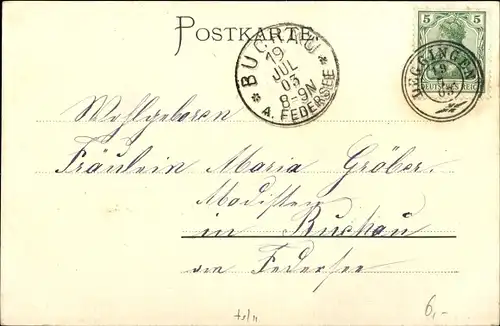 POSTKARTE
BUCHAU
19
JUL
03
8-9N
* A. FEDERSEE *
5 5
DEUTSCHES REICH
19
03
Wohlgeboren
Fräulein Maria Gröber
Modistin
in Buchau
am Federsee
6,-